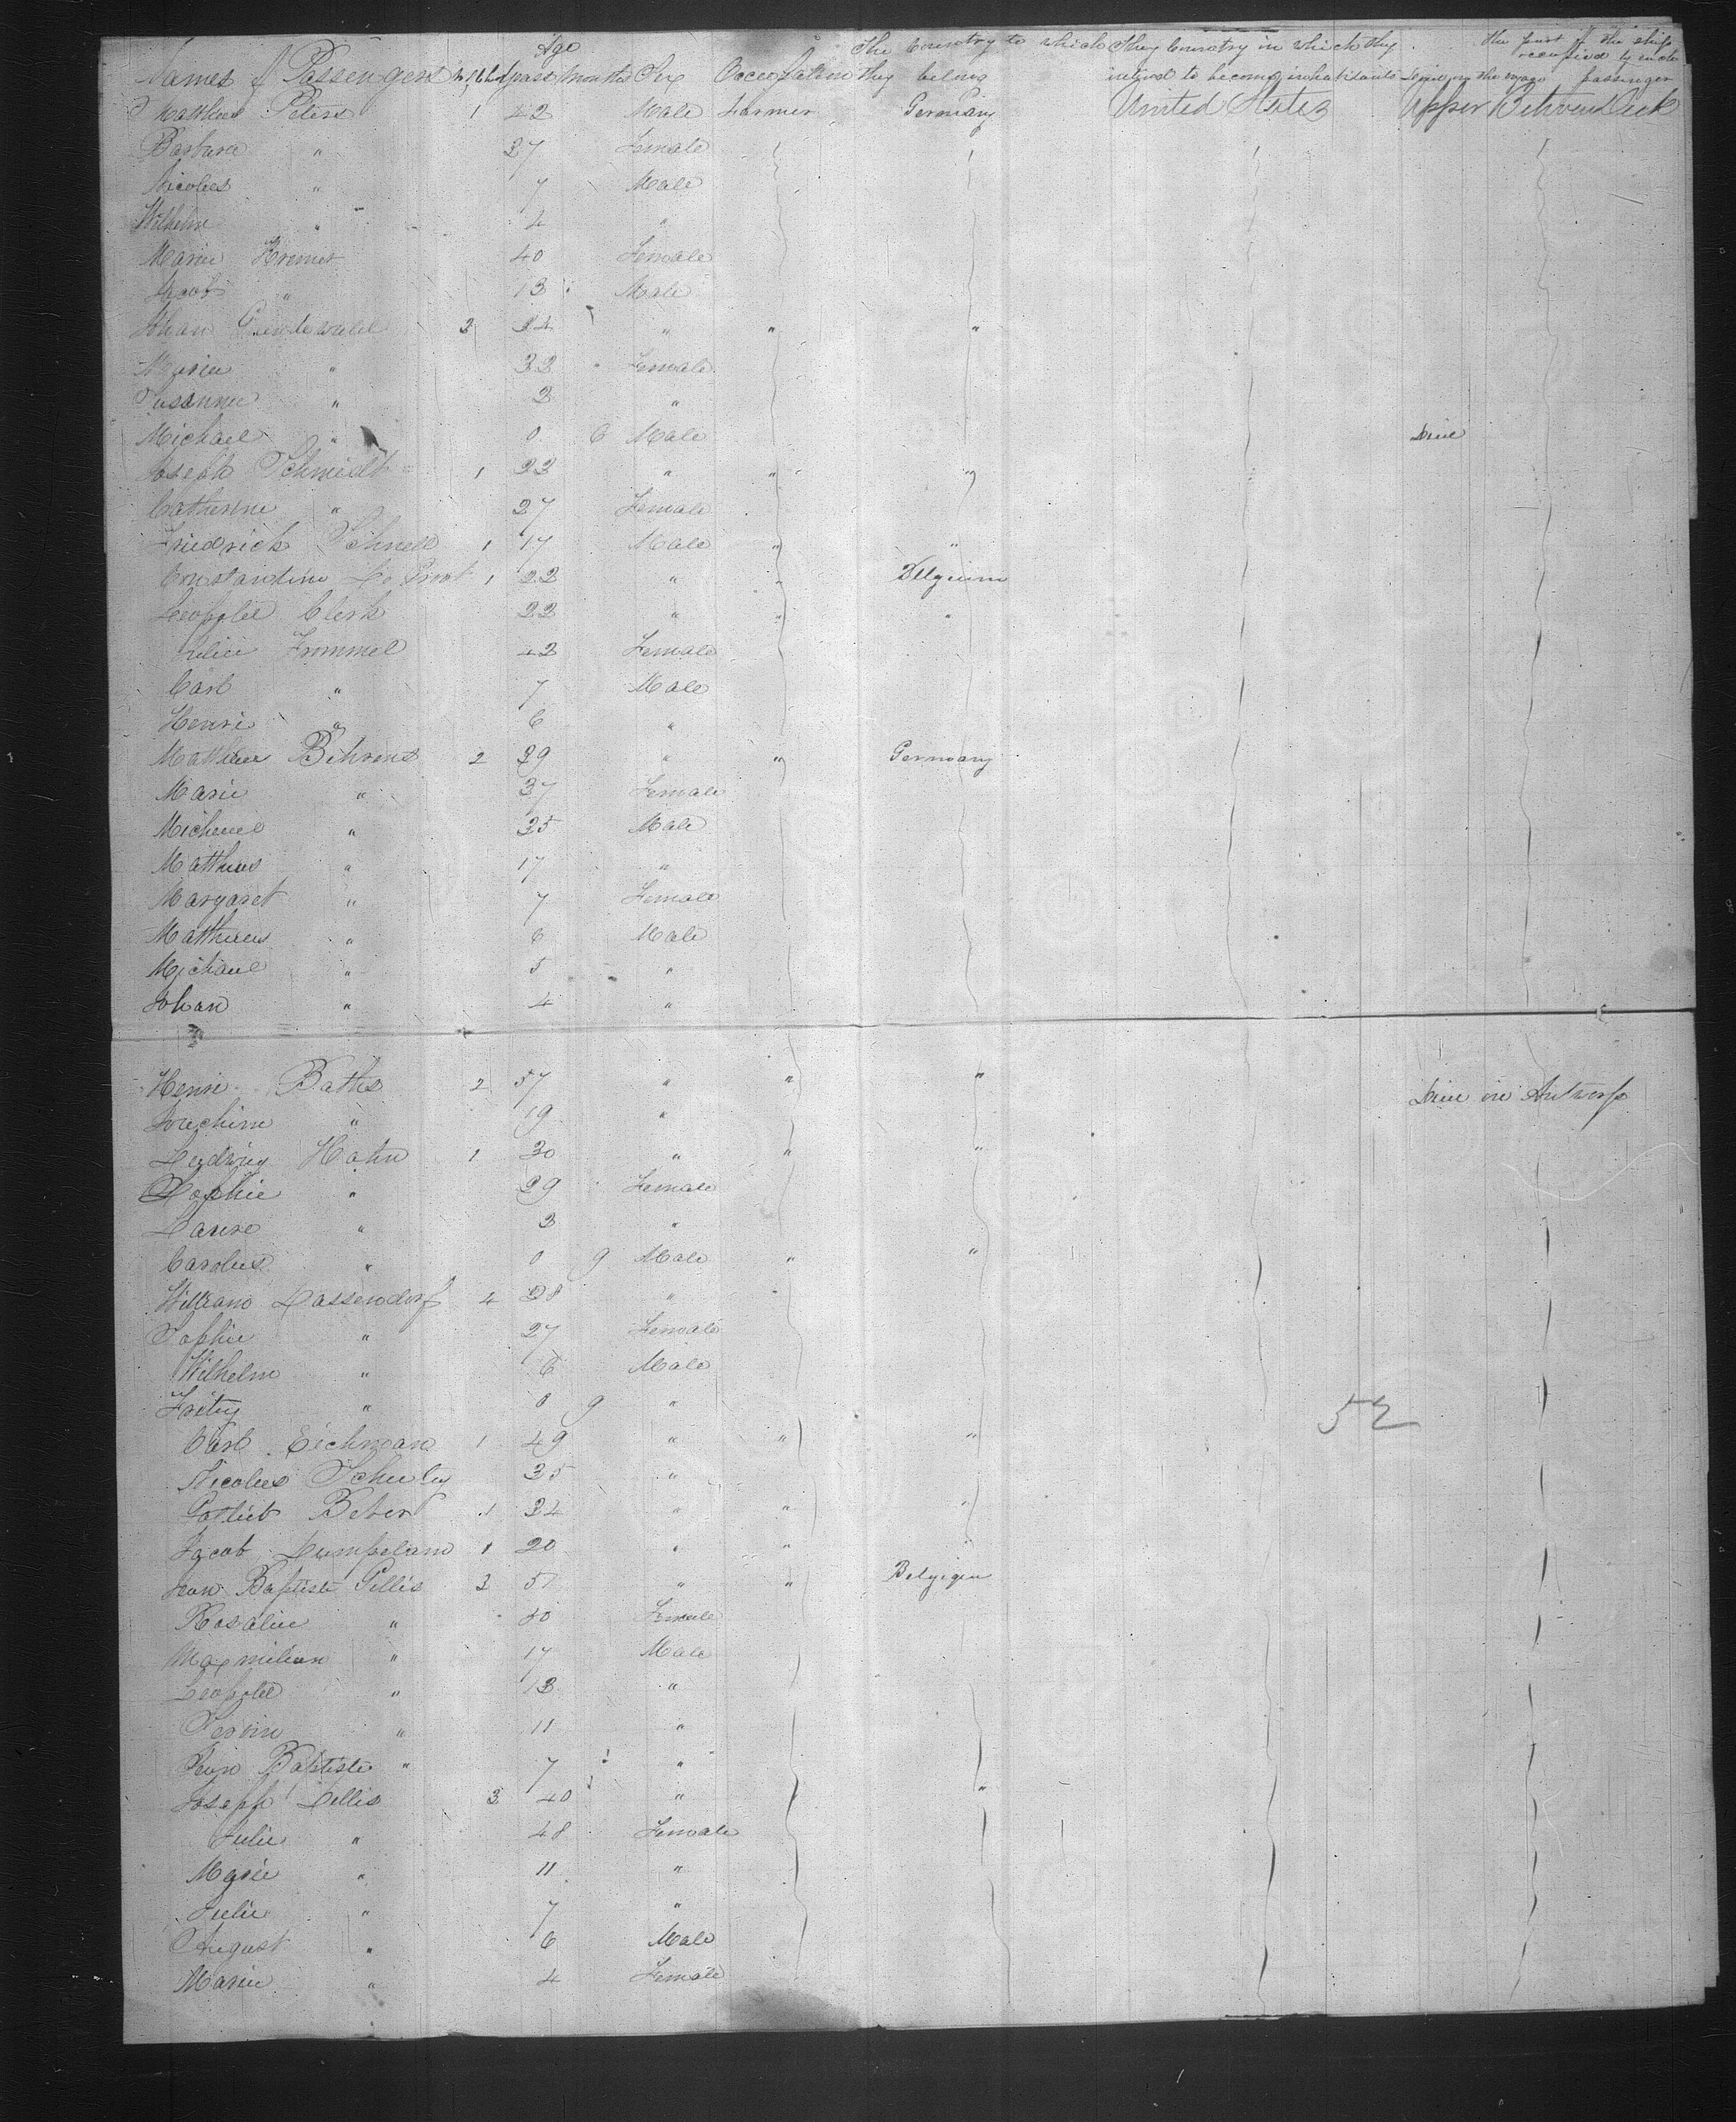 Age The Country to which They Country in which thy the part of the ship
Names of Passengers years months Sex Occupation they belong intend to become inhabitants Died on the voyage occupied by each passenger
Mathieu Peters 1 42 Male Farmer Germany United States Upper Between Deck
Barbara " 27 Female
Nicolas " 7 Male
Wilhelm " 4 "
Marie Kremer 40 Female
Jacob " 13 Male
Johan 2 34 " " "
Maria " 32 Female
Susanne " 3 "
Michael " 0 6 Male Died
Joseph Schmidt 1 22 " " "
Catherine " 27 Female
Friedrich Schnell 1 17 Male " "
Constantin 1 22 " " Belgium
Leopold Clerk 22 " " "
Julie Frommel 42 Female
Carl " 7 Male
Henri " 6 "
Mathieu Behrens 2 39 " " Germany
Marie " 37 Female
Michael " 25 Male
Matthias " 17 "
Margaret " 7 Female
Matthias " 6 Male
Michael " 5 "
Johan " 4 "
Henri Baths 2 57 " " " Died in Antwerp
Joachim " 19 "
Ludwig Hahn 1 30 " " "
Sophie " 29 Female
" 3 "
Carolus " 0 9 Male " "
William Dassendorf 4 38 "
Sophie " 27 Female
Wilhelm " 6 Male
Fritz " 0 9 "
52
Carl Eichman 1 49 " " "
Nicolas Schultz 35 "
Gottlieb 1 34 " " "
Jacob 1 20 " " "
Jean Baptiste Gillis 2 51 " " Belgien
Rosalie " 40 Female
Maxmilian " 17 Male
Leopold " 13 "
" 11 "
Jean Baptiste " 7 "
Joseph 3 40 " "
Julie " 48 Female
Marie " 11 "
Julie " 7 "
August " 6 Male
Marie " 4 Female